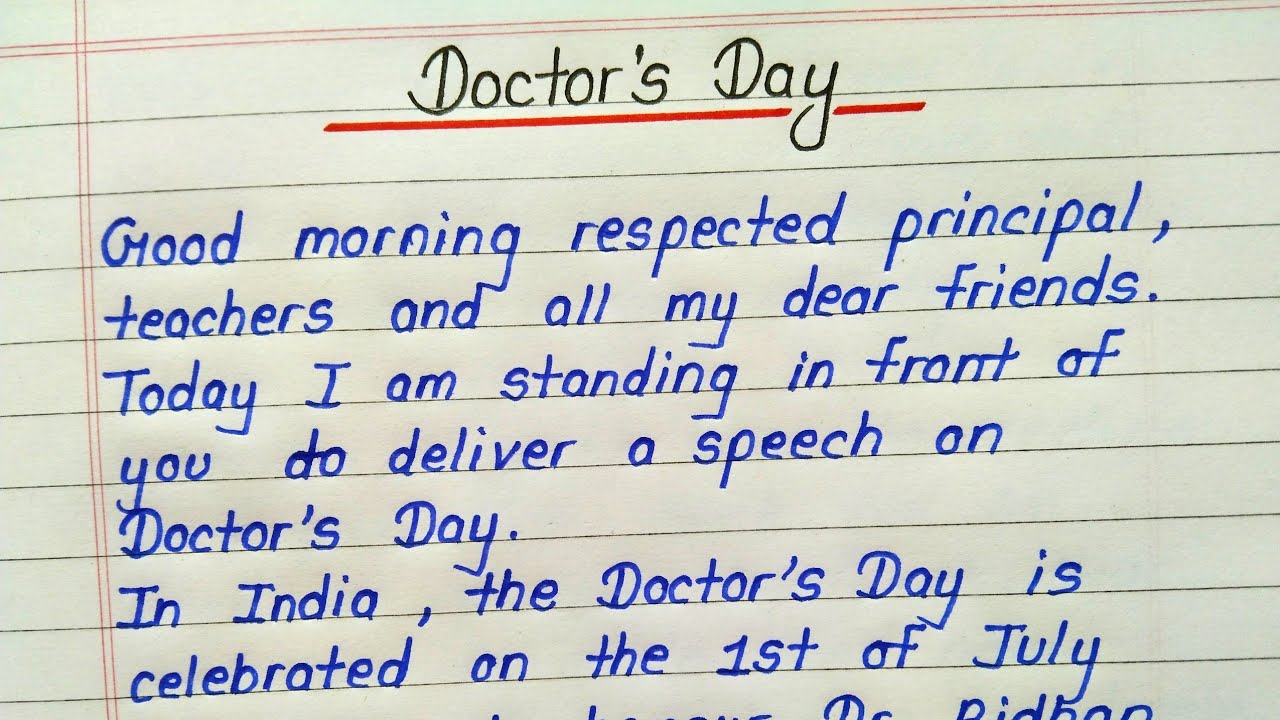 Doctor's Day
Good morning respected principal,
teachers and all my dear friends.
Today I am standing in front of
you to deliver a speech on
Doctor's Day.
In India, the Doctor's Day is
celebrated on the 1st of July
Dr. Bidhan